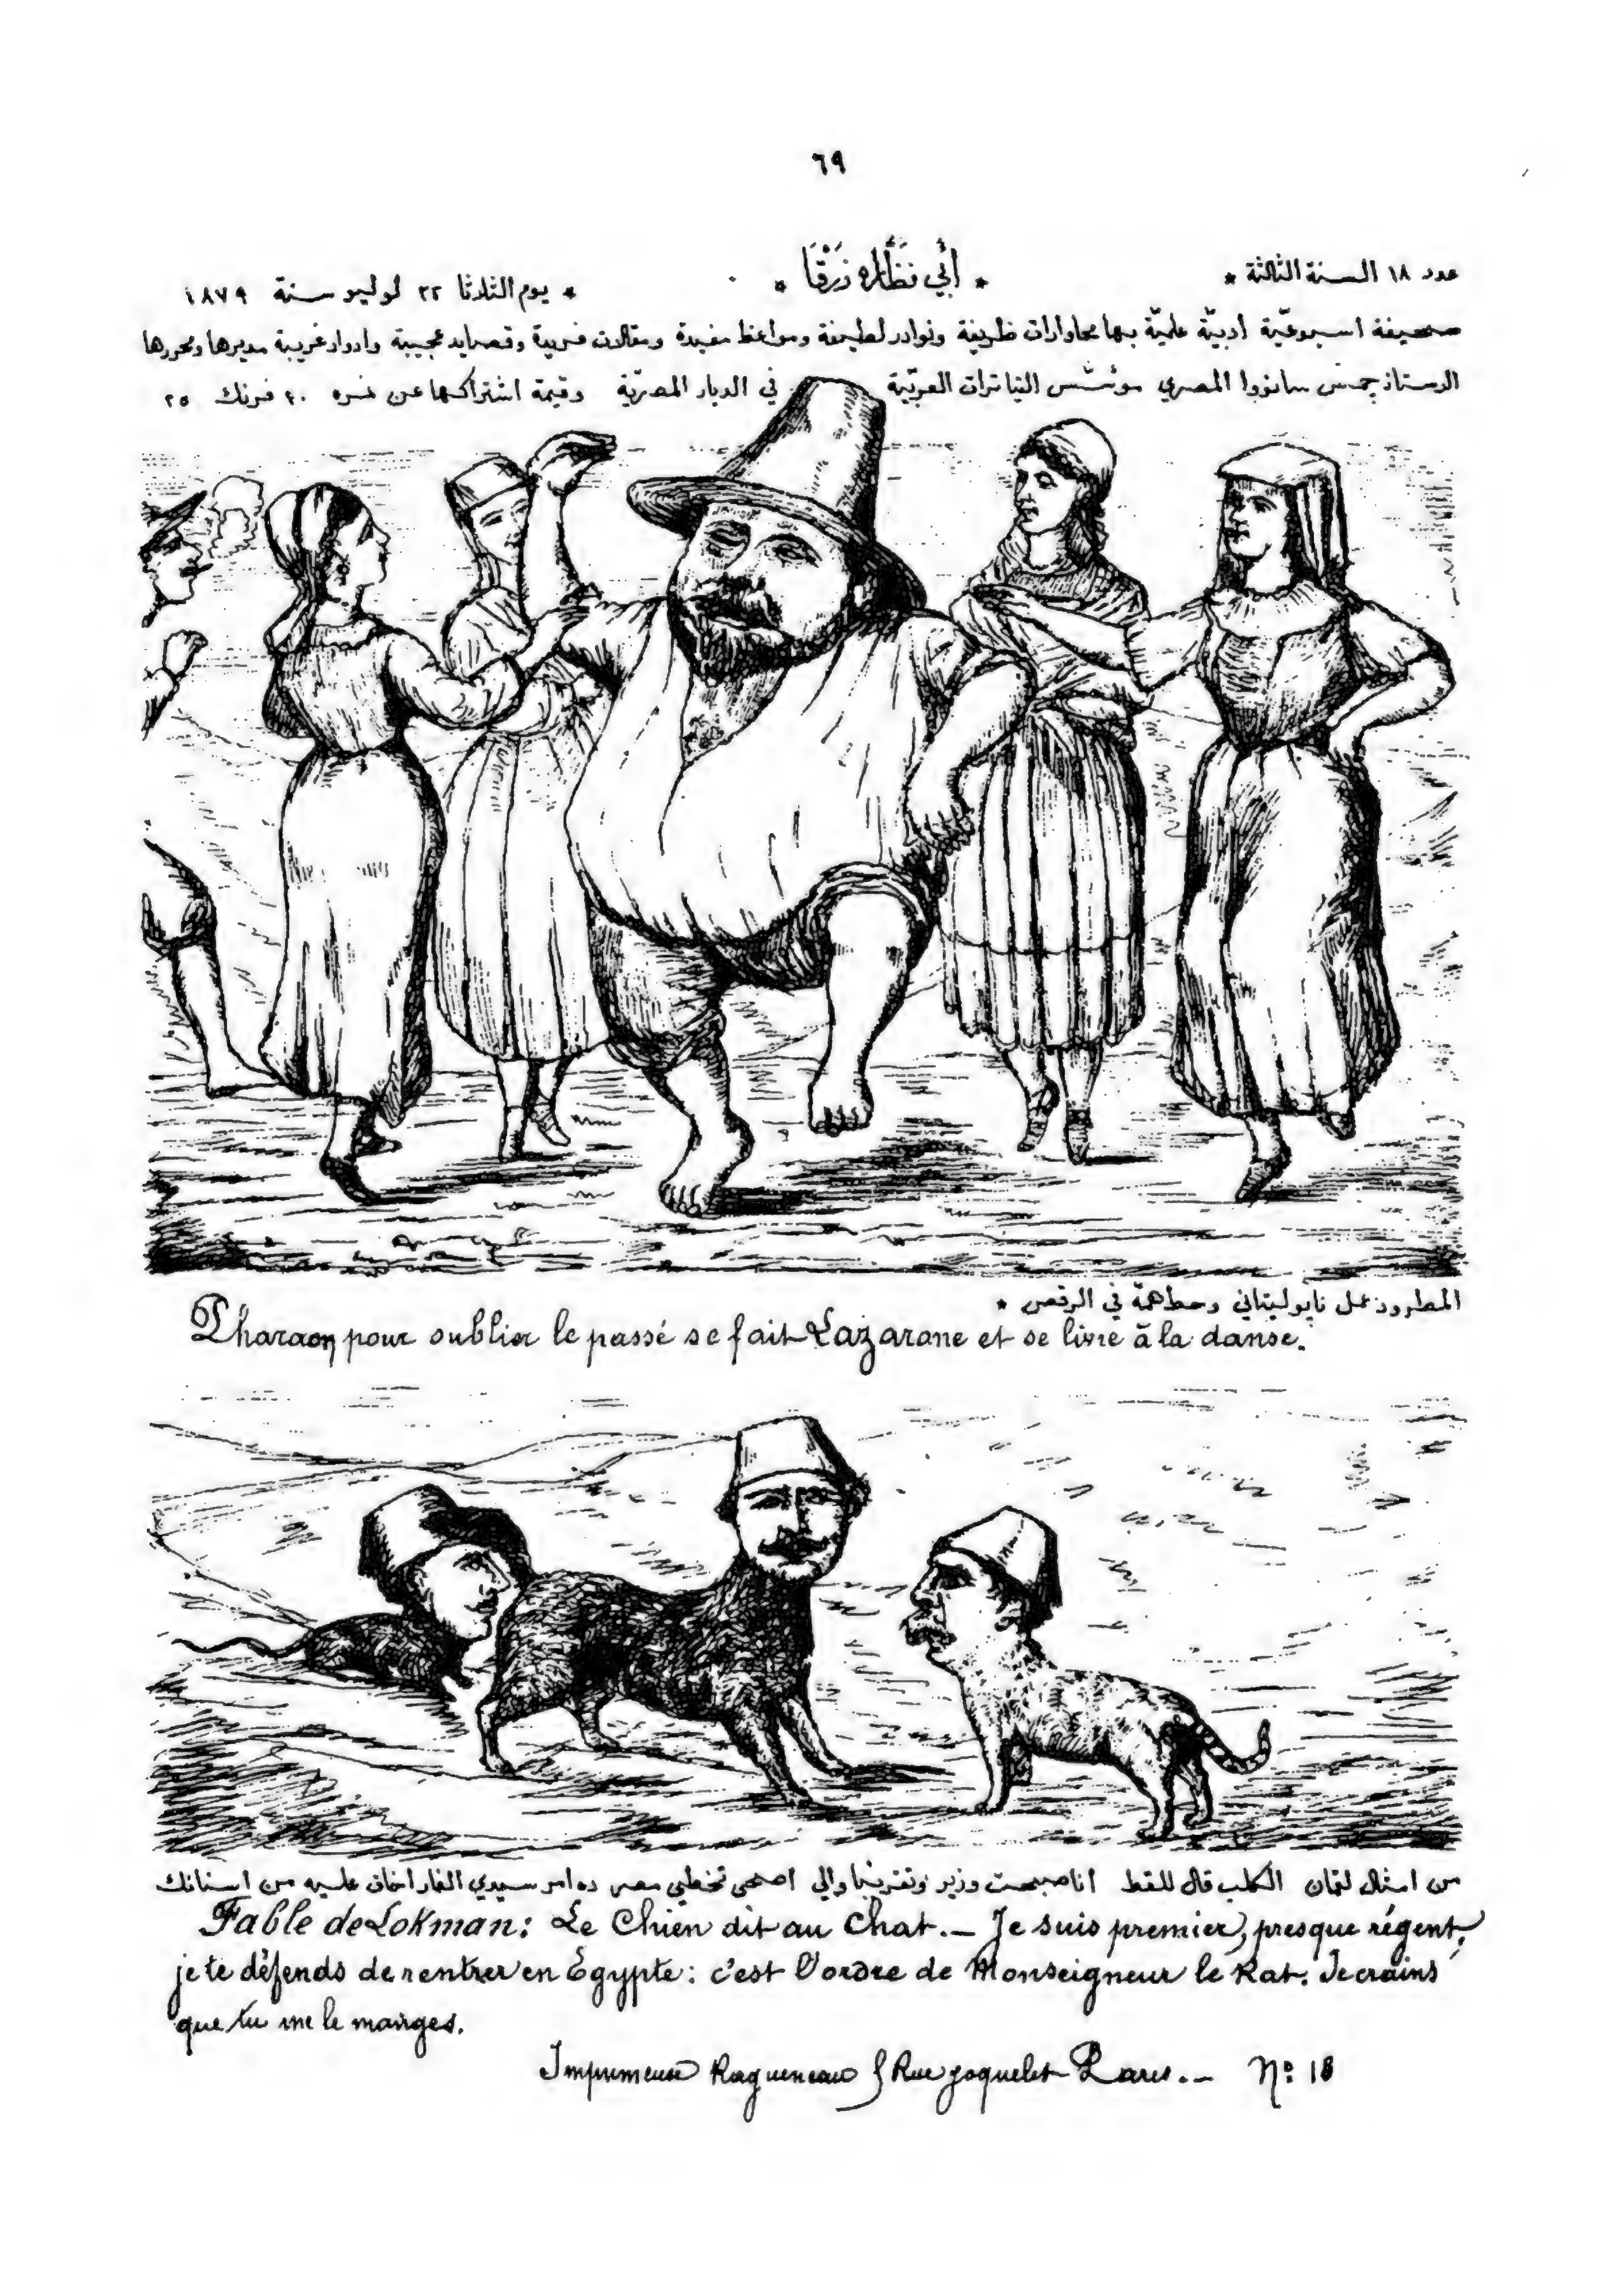 ٦٩
عدد ١٨ السنة الثالثة * * أبي نظّاره زرقا * * يوم الثلاثا ٢٢ لوليو سنة ١٨٧٩
صحيفة اسبوعيّة أدبيّة علميّة بها محاوارات ظريفة ونوادر لطيفة ومواعظ مفيدة ومقالات فريدة وقصايد عجيبة وادوار غريبة مديرها ومحررها
الاستاذ جمس سانووا المصري موئسّس التياترات العربيّة في الديار المصريّة وقيمة اشتراكها عن نمره ٣٠ فرنك ٢٥
المطرود عمل نابوليتاني وحط همّه في الرقص *
Pharaon pour oublier le passé se fait Lazarone et se livre à la danse.
من امثال لقمان الكلب قال للقط انا صبحت وزير وتقريبا والي اصحى تخطي مصر ده امر سيدي الفار اخاف عليه من اسنانك
Fable de Lokman: Le Chien dit au Chat. — Je suis premier, presque régent,
je te défends de rentrer en Égypte: c'est l'ordre de Monseigneur le Rat. Je crains
que tu me le manges.
Imprimeuse Ragueneau 8 Rue Joquelet Paris. — Nº 18